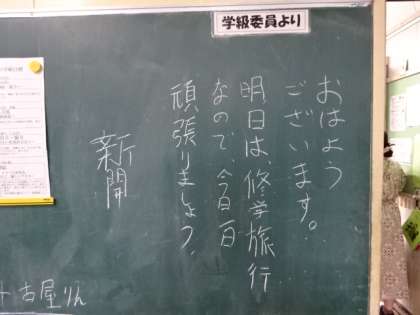 学級委員より
おはよう
ございます。
明日は、修学旅行
なので、今日一日
頑張りましょう。
新聞
古屋りん